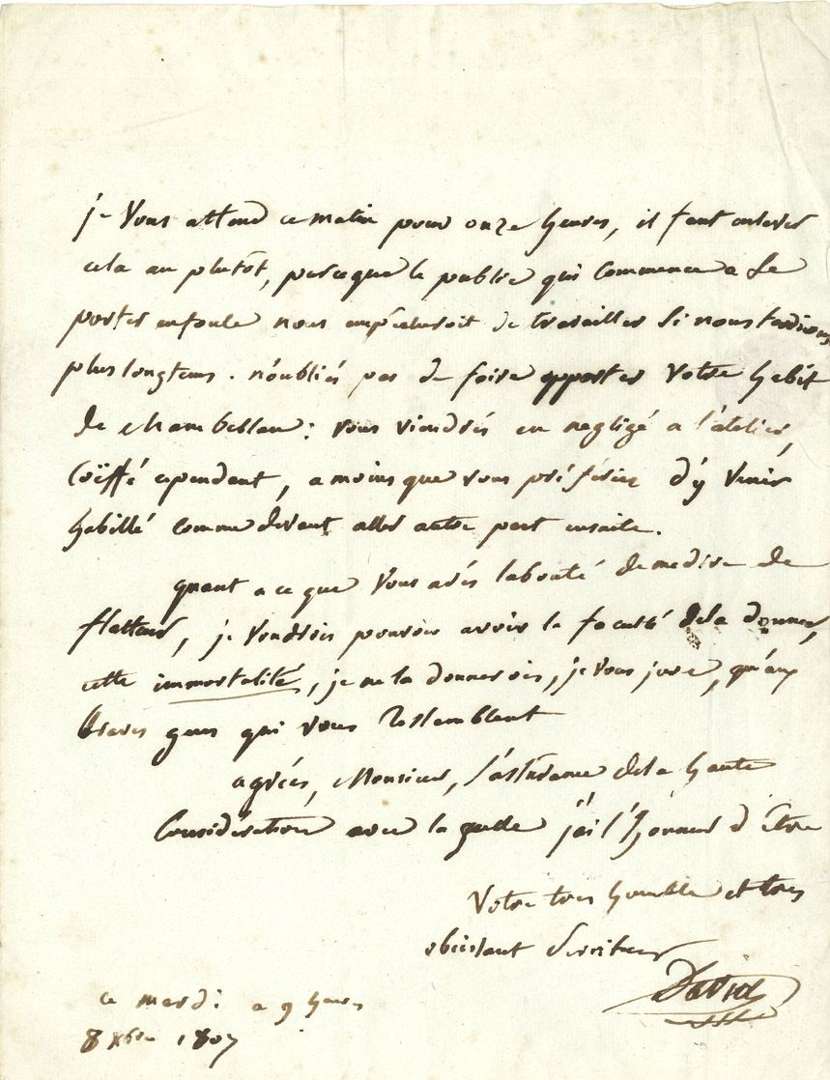 je Vous attend ce matin pour onze heures, il faut enlever
cela au plutôt, parceque le public qui Commence a Se
porter enfoule nous empêcheroit de travailler Si nous tardions
plus longtems. n'oubliés pas de faire apporter votre habit
de chambellan: vous viendrés en negligé a l'atelier,
Coëffé cependant, a moins que vous préfériez d'y venir
habillé comme devant aller autre part ensuite.
quant a ce que Vous avés labonté de me dire de
flatteur, je voudrois pouvoir avoir la faculté de la donner,
cette immortalité, je ne la donnerois, je vous jure, qu'aux
braves gens qui vous Ressemblent
agréés, Monsieur, l'assurance de la haute
Considération avec la quelle j'ai l'honneur d'être
Votre tres humble et tres
obéissant Serviteur
David
ce mardi a 9 heures
8 Xbre 1807